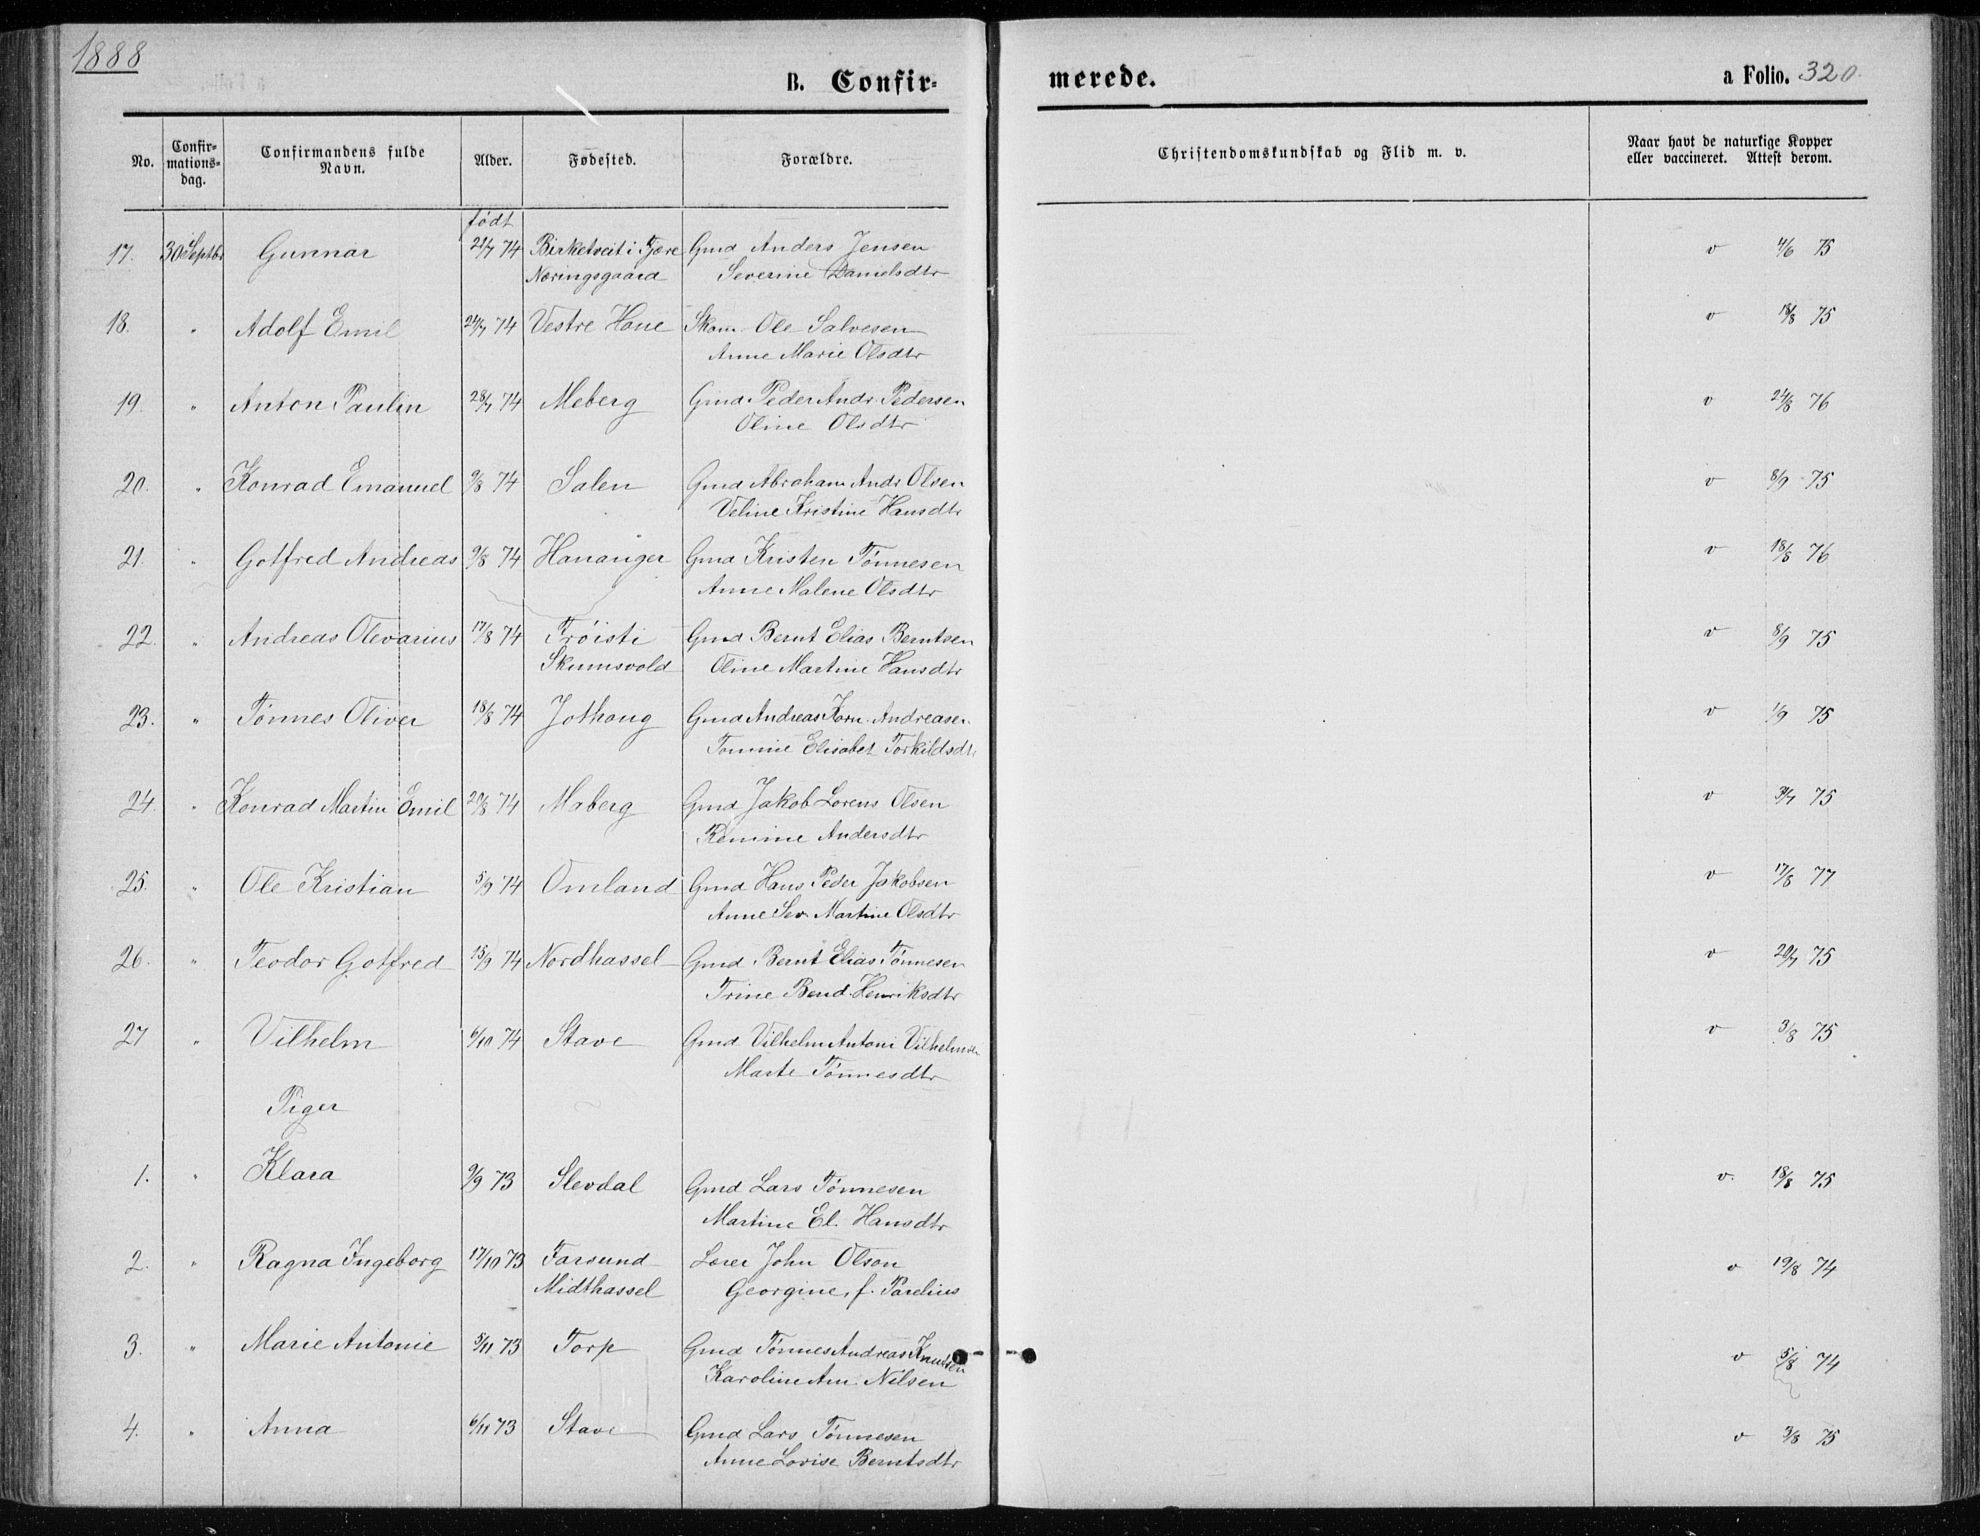 1888
B. Confir-
merede.
a Folio. 320.
No.
Confir-
mations-
dag.
Confirmandens fulde
Navn.
Alder.
Fødested.
Forældre.
Christendomskundskab og Flid m. v.
Naar havt de naturlige Kopper
eller vaccineret. Attest derom.
født
17. 30 Septbr Gunnar 21/7 74 Birketveit i Fjære Gmd Anders Jensen v 4/6 75
Næringsgaard Severine Danielsdtr
18. " Adolf Emil 24/7 74 Vestre Hane Skom. Ole Salvesen v 18/8 75
Anne Marie Olsdtr
19. " Anton Paulin 28/7 74 Meberg Gmd Peder Andr. Pedersen v 24/8 76
Oline Olsdtr
20. " Konrad Emanuel 9/8 74 Salen Gmd Abraham Andr Olsen v 8/9 75
Veline Kristine Hansdtr
21. " Gotfred Andreas 9/8 74 Hananger Gmd Kristen Tønnesen v 18/8 76
Anne Malene Olsdtr
22. " Andreas Olevarius 17/8 74 Frøisti Gmd Bernt Elias Berntsen v 8/9 75
Skumsvold Oline Martine Hansdtr
23. " Tønnes Oliver 18/8 74 Jothaug Gmd Andreas Korn. Andreasen v 1/9 75
Tomine Elisabet Torkildsdtr
24. " Konrad Martin Emil 20/8 74 Maberg Gmd Jakob Lorens Olsen v 3/7 75
Remine Andersdtr
25. " Ole Kristian 5/9 74 Omland Gmd Hans Peder Jakobsen v 17/8 77
Anne Sev. Martine Olsdtr
26. " Teodor Gotfred 15/9 74 Nordhassel Gmd Bernt Elias Tønnesen v 20/7 75
Trine Bend. Henriksdtr
27 " Vilhelm 6/10 74 Stave Gmd Vilhelm Antoni Vilhelmsen v 3/8 75
Marte Tønnesdtr
Piger
1. " Klara 9/9 73 Slevdal Gmd Lars Tønnesen v. 18/8 75
Martine El. Hansdtr
2. " Ragna Ingeborg 17/10 73 Farsund Lærer John Olson v 19/8 74
Midthassel Georgine, f. Parelius
3. " Marie Antonie 5/11 73 Torp Gmd Tønnes Andreas Knutsen v 5/8 74
Karoline Am. Nilsen
4. " Anna 6/11 73 Stave Gmd Lars Tønnesen v 3/8 75
Anne Lovise Berntsdtr